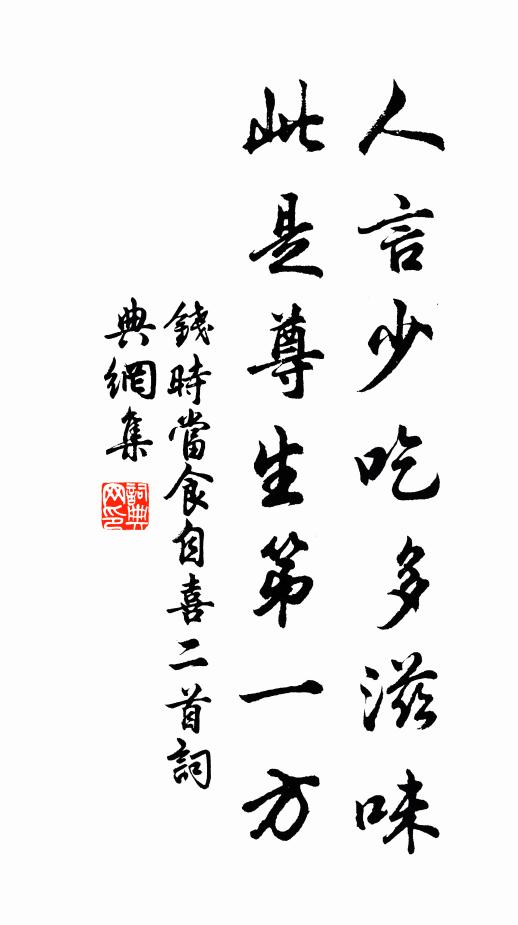 人言少吃多滋味
此是尊生第一方
錢時當食自喜二首詞
典網集
詞典网印